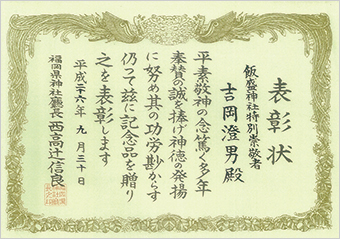 表彰状
飯盛神社特別崇敬者
吉岡澄男殿
平素敬神の念篤く多年
奉賛の誠を捧げ神徳の発揚
に努め其の功労尠からす
仍つて茲に記念品を贈り
之を表彰します
平成二十六年九月三十日
福岡県神社廳長西高辻信良